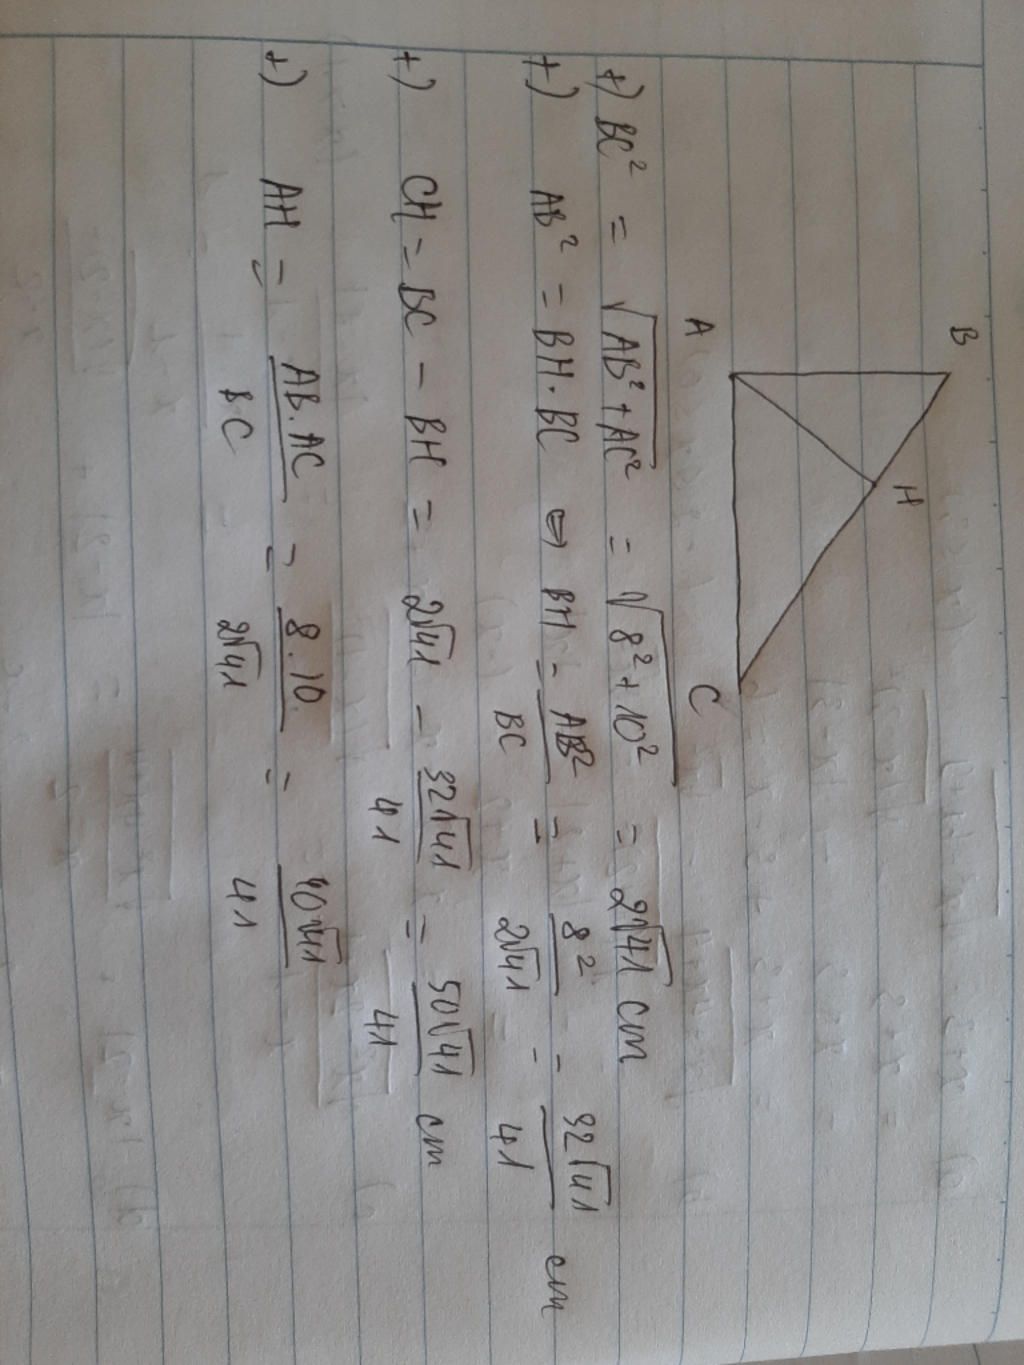 B
H
A
C
+) BC² = √AB²+AC² = √8²+10² = 2√41 cm
+) AB² = BH.BC ⇔ BH = AB²/BC = 8²/2√41 = 32√41/41 cm
+) CH = BC - BH = 2√41 - 32√41/41 = 50√41/41 cm
+) AH = AB.AC/BC = 8.10/2√41 = 40√41/41